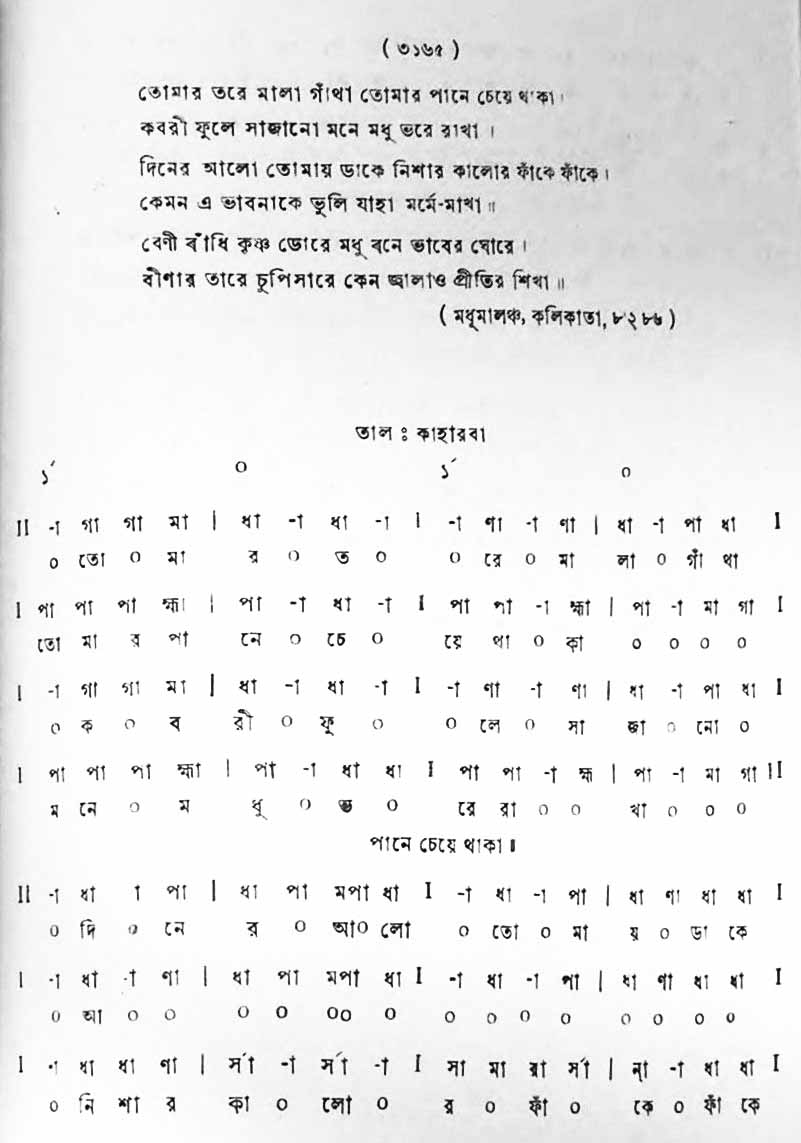 ( ৩১৬৫ )
তোমার তরে মালা গাঁথা তোমার পানে চেয়ে থাকা।
কবরী ফুলে সাজানো মনে মধু ভরে রাখা।
দিনের আলো তোমায় ডাকে নিশার কালোর ফাঁকে ফাঁকে।
কেমন এ ভাবনাকে ভুলি যাহা মর্মে-মাখা॥
বেণী বাঁধি কৃষ্ণ ডোরে মধু বনে ভাবের ঘোরে।
বীণার তারে চুপিসারে কেন জ্বালাও প্রীতির শিখা॥
( মধুমালঞ্চ, কলিকাতা, ৮২৮৬ )
তাল ঃ কাহারবা
১´ ০ ১´ ০
II -া গা গা মা | ধা -া ধা -া I -া ণা -া ণা | ধা -া পা ধা I
০ তো ০ মা র ০ ত ০ ০ রে ০ মা লা ০ গাঁ থা
I পা পা পা হ্মা | পা -া ধা -া I পা পা -া হ্মা | পা -া মা গা I
তো মা র পা নে ০ চে ০ য়ে থা ০ কা ০ ০ ০ ০
I -া গা গা মা | ধা -া ধা -া I -া ণা -া ণা | ধা -া পা ধা I
০ ক ০ ব রী ০ ফু ০ ০ লে ০ সা জা ০ নো ০
I পা পা পা হ্মা | পা -া ধা ধা I পা পা -া হ্ম | পা -া মা গা II
ম নে ০ ম ধু ০ ভ ০ রে রা ০ ০ খা ০ ০ ০
পানে চেয়ে থাকা॥
II -া ধা া পা | ধা পা মপা ধা I -া ধা -া পা | ধা ণা ধা ধা I
০ দি ০ নে র ০ আ০ লো ০ তো ০ মা য় ০ ডা কে
I -া ধা -া ণা | ধা পা মপা ধা I -া ধা -া পা | ধা ণা ধা ধা I
০ আ ০ ০ ০ ০ ০০ ০ ০ ০ ০ ০ ০ ০ ০ ০
I -া ধা ধা ণা | র্সা -া র্সা -া I সা মা রা র্সা | ন্া -া ধা ধা I
০ নি শা র কা ০ লো ০ র ০ ফাঁ ০ কে ০ ফাঁ কে